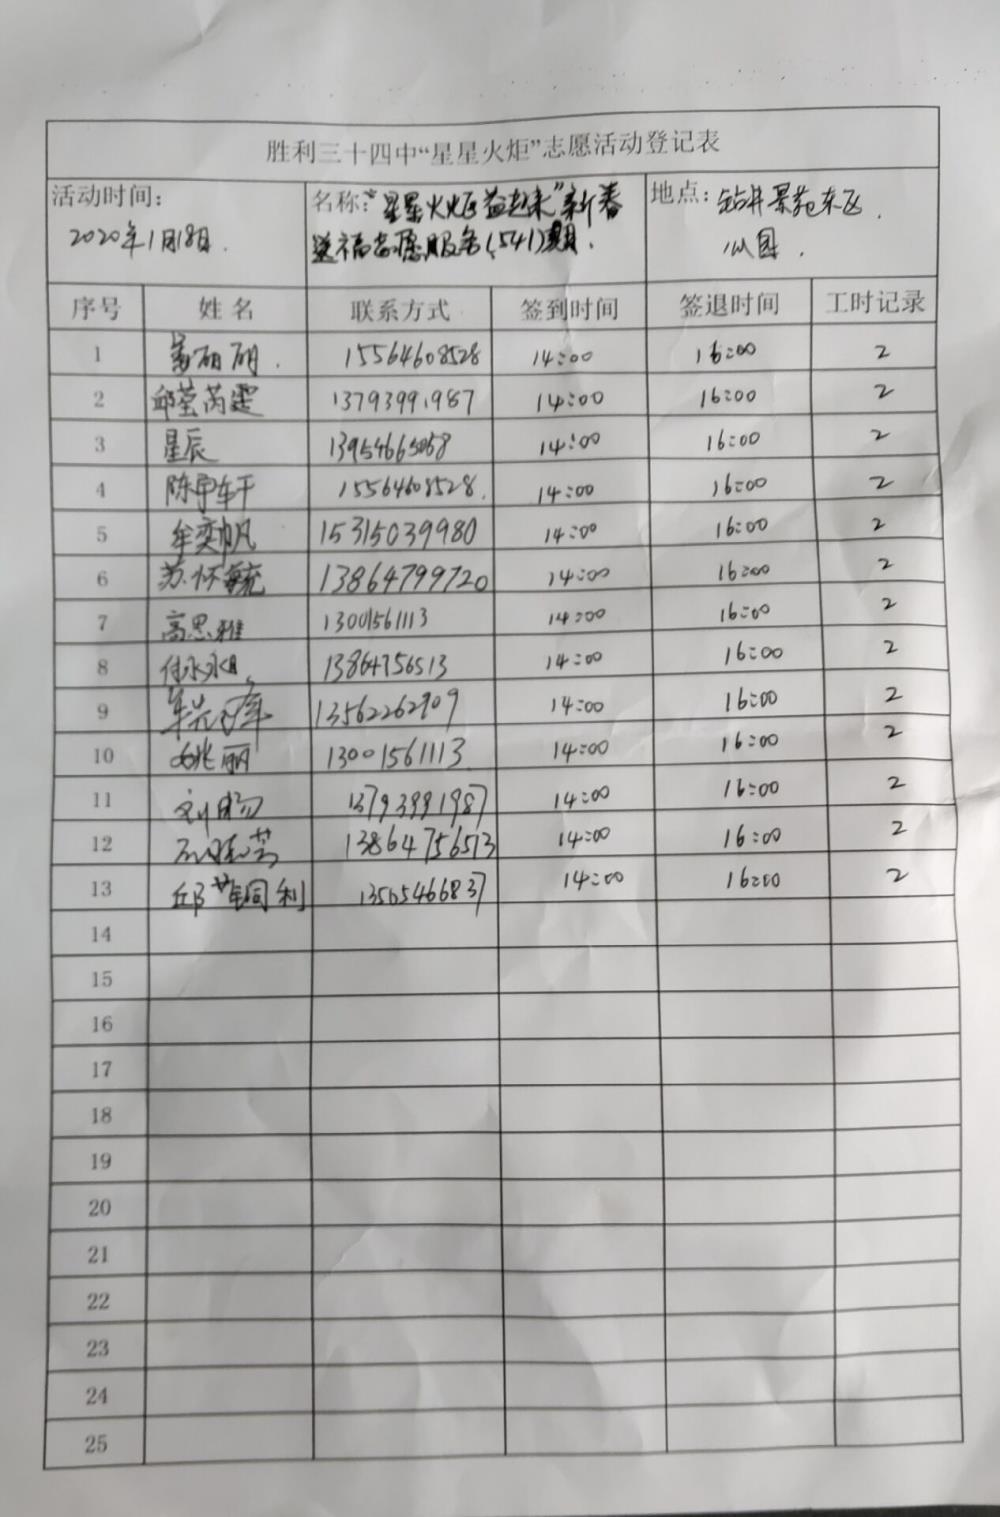 胜利三十四中“星星火炬”志愿活动登记表
活动时间： 名称：“星星火炬益起来”新春 地点：钻井景苑东区
2020年1月18日. 送福志愿服务(541)期. 公园.
序号 姓名 联系方式 签到时间 签退时间 工时记录
1 15564608528 14:00 16:00 2
2 邱莹芮雯 13793991987 14:00 16:00 2
3 星辰 13954665058 14:00 16:00 2
4 陈 轩 15564608528. 14:00 16:00 2
5 牟奕帆 15315039980 14:00 16:00 2
6 苏怀毓 13864799720 14:00 16:00 2
7 高思雅 13001561113 14:00 16:00 2
8 付 13864756513 14:00 16:00 2
9 牟 13562262909 14:00 16:00 2
10 姚丽 13001561113 14:00 16:00 2
11 刘 13793991987 14:00 16:00 2
12 13864756513 14:00 16:00 2
13 邱 利 13505466837 14:00 16:00 2
14
15
16
17
18
19
20
21
22
23
24
25